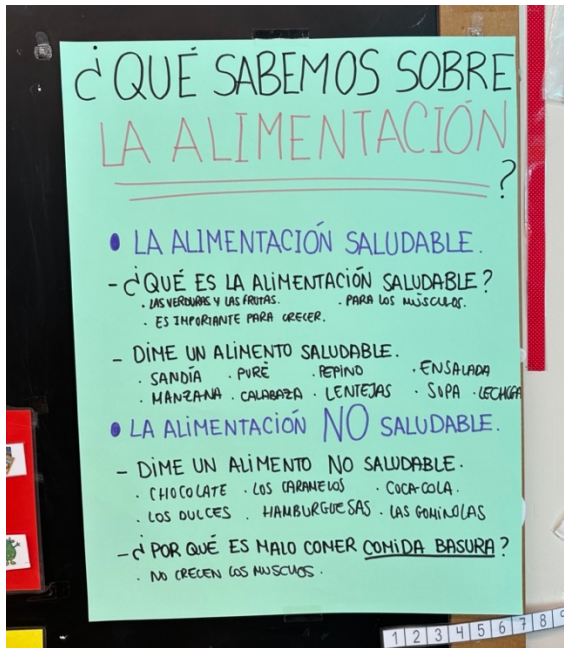 ¿QUÉ SABEMOS SOBRE
LA ALIMENTACIÓN
?
• LA ALIMENTACIÓN SALUDABLE.
- ¿QUÉ ES LA ALIMENTACIÓN SALUDABLE?
· LAS VERDURAS Y LAS FRUTAS. · PARA LOS MÚSCULOS.
· ES IMPORTANTE PARA CRECER.
- DIME UN ALIMENTO SALUDABLE.
· SANDÍA · PURÉ · PEPINO · ENSALADA
· MANZANA · CALABAZA · LENTEJAS · SOPA · LECHUGA
• LA ALIMENTACIÓN NO SALUDABLE.
- DIME UN ALIMENTO NO SALUDABLE.
· CHOCOLATE · LOS CARAMELOS · COCA-COLA.
· LOS DULCES . HAMBURGUESAS · LAS GOMINOLAS
- ¿POR QUÉ ES MALO COMER COMIDA BASURA?
· NO CRECEN LOS MUSCULOS.
1 2 3 4 5 6 7 8 9